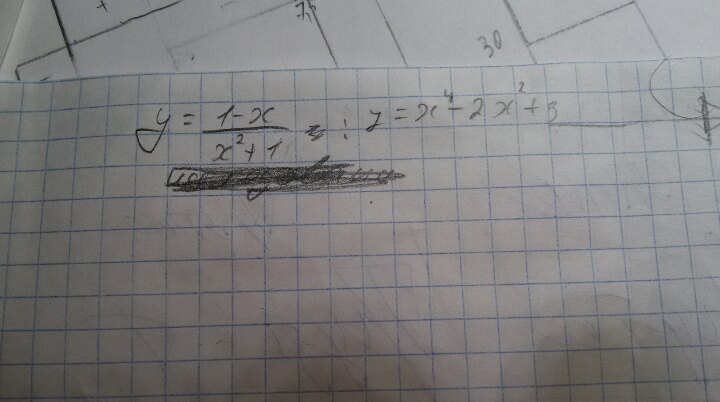 7,5
30
y = (1-x)/(x²+1) ; y = x⁴ - 2x² + 3